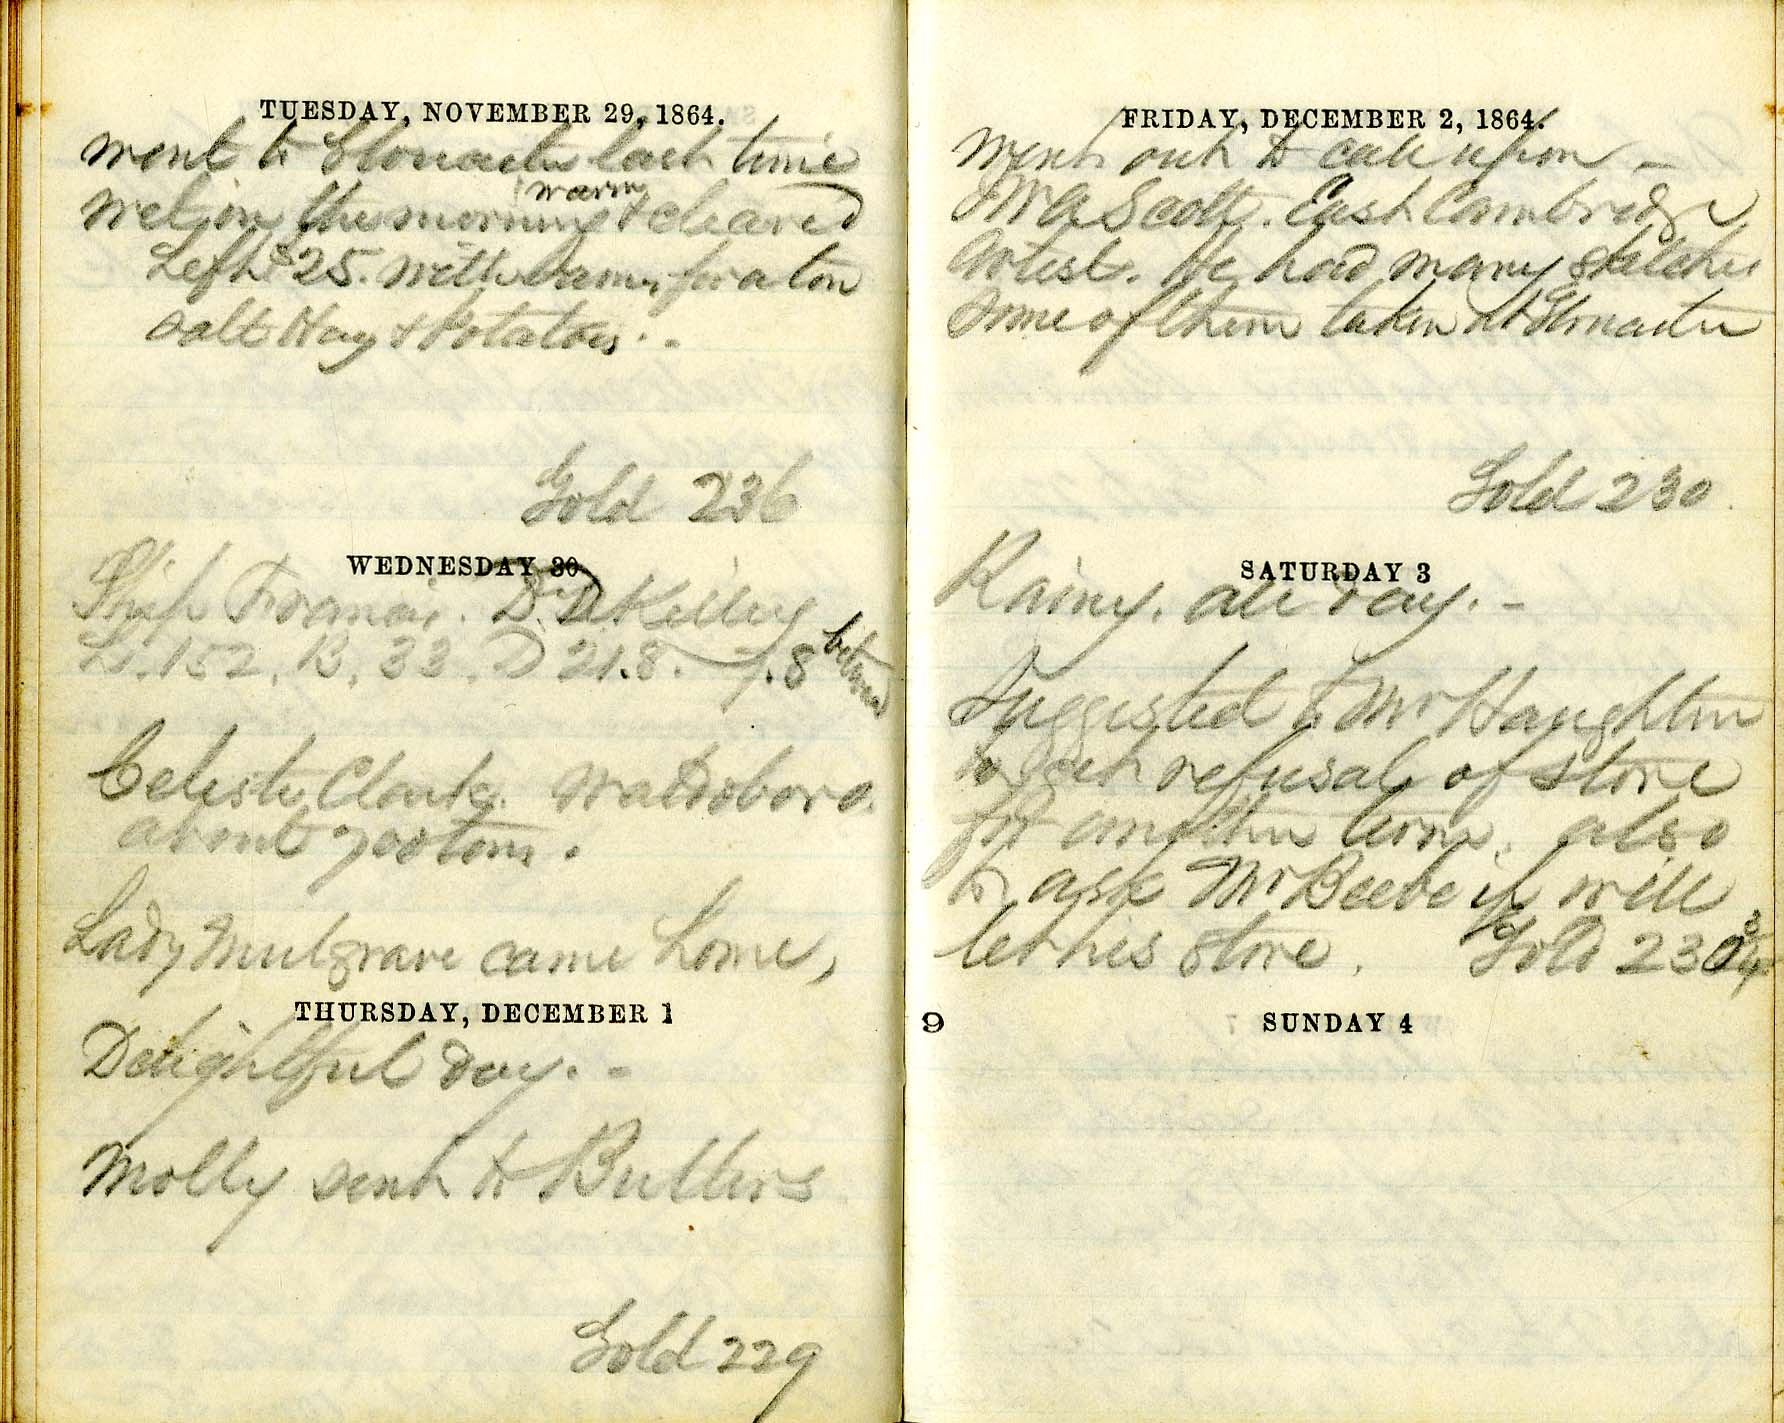 TUESDAY, NOVEMBER 29, 1864.
Went to Gloucester last time
wet in the morning warm & cleared
Left $25. with for a ton
salt Hay & Potatoes. -
Gold 236
WEDNESDAY 30
Ship Francis. D.D. Kelley
L. 152, B. 33. D 21.8. 7.8 between
Celeste Clark. Waldoboro.
about 700 tons.
Lady Mulgrave came home,
THURSDAY, DECEMBER 1
Delightful day. -
Molly sent to Butlers
Gold 229
FRIDAY, DECEMBER 2, 1864.
Went out to call upon -
Scott. East Cambridge
Artist. He had many sketches
Some of them taken at Gloucester
Gold 230
SATURDAY 3
Rainy. all day. -
Suggested to Mr Haughton
to get refusal of store
for another term. also
to ask Mr Beebe if will
let his store. Gold 230 3/4
9
SUNDAY 4